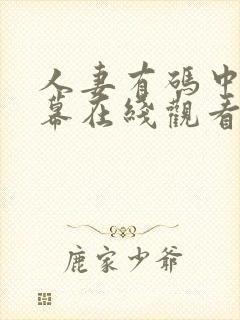 人妻有碼中
幕在綫觀看
鹿家少爺